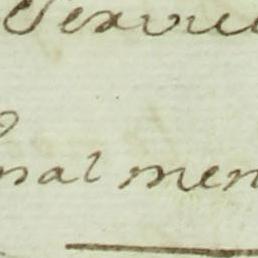 Servic
nal men